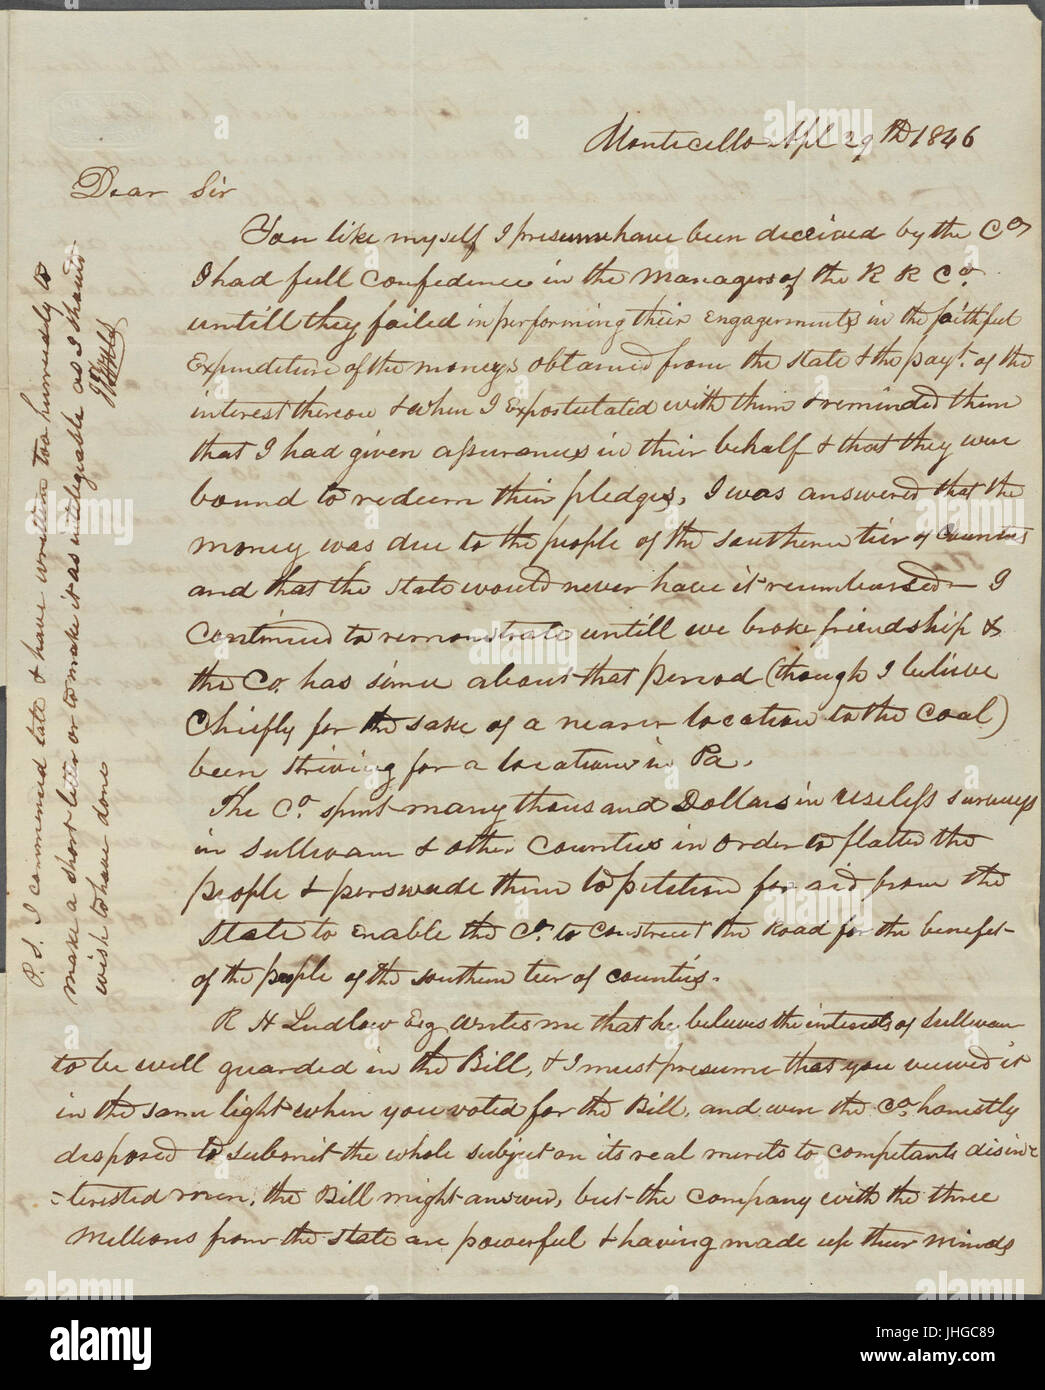 Monticello Apl 29th 1846
Dear Sir
You like myself I presume have been deceived by the Co
I had full confedence in the Managers of the R R Co.
untill they failed in performing their engagements in the faithful
Expenditure of the moneys obtained from the state & the payt. of the
interest thereon & when I Expostulated with them & reminded them
that I had given assurances in their behalf & that they were
bound to redeem their pledges, I was answered that the
money was due to the people of the southern tier of Counties
and that the state would never have it reimbursed — I
Continued to remonstrate untill we broke friendship &
the Co. has since about that period (though I believe
Chiefly for the sake of a nearer location to the Coal)
been striving for a location in Pa.
The Co. spent many thousand Dollars in useless surveys
in Sullivan & other Counties in order to flatter the
people & perswade them to petition for aid from the
State to enable the Co. to Construct the Road for the benefit
of the people of the southern tier of counties.
R H Ludlow Esq writes me that he believes the interests of Sullivan
to be well guarded in the Bill, & I must presume that you viewed it
in the same light when you voted for the Bill, and were the Co. honestly
disposed to submit the whole subject on its real merits to competant disin
=terested men, the Bill might answer, but the company with the three
Millions from the State are powerful & having made up their minds
P.S. I commenced late & have written too hurriedly to
make a short letter or to make it as intelegiable as I should
wish to have done
alamy
a
Image ID: JHGC89
www.alamy.com